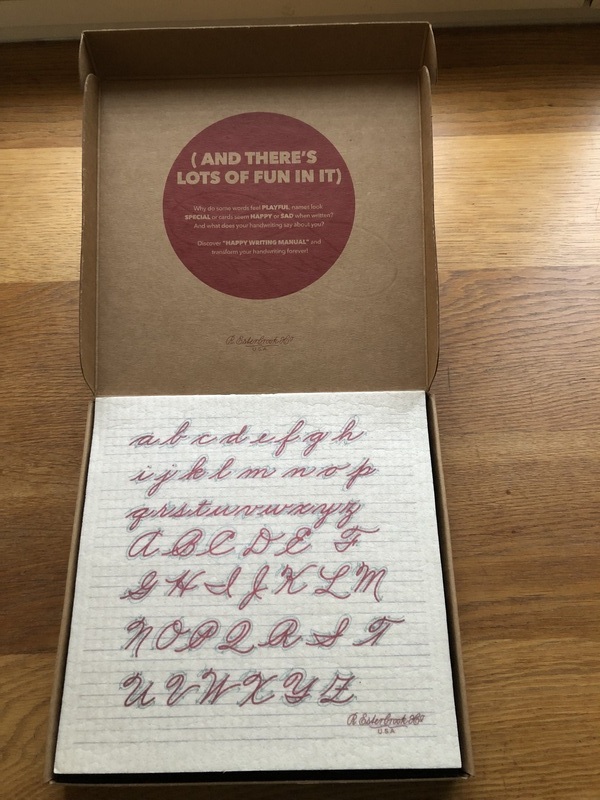 ( AND THERE'S
LOTS OF FUN IN IT)
Why do some words feel PLAYFUL, names look
SPECIAL or cards seem HAPPY or SAD when written?
And what does your handwriting say about you?
Discover "HAPPY WRITING MANUAL" and
transform your handwriting forever!
R. Esterbrook
U.S.A
a b c d e f g h
i j k l m n o p
q r s t u v w x y z
A B C D E F
G H I J K L M
N O P Q R S T
U V W X Y Z
R. Esterbrook
U.S.A